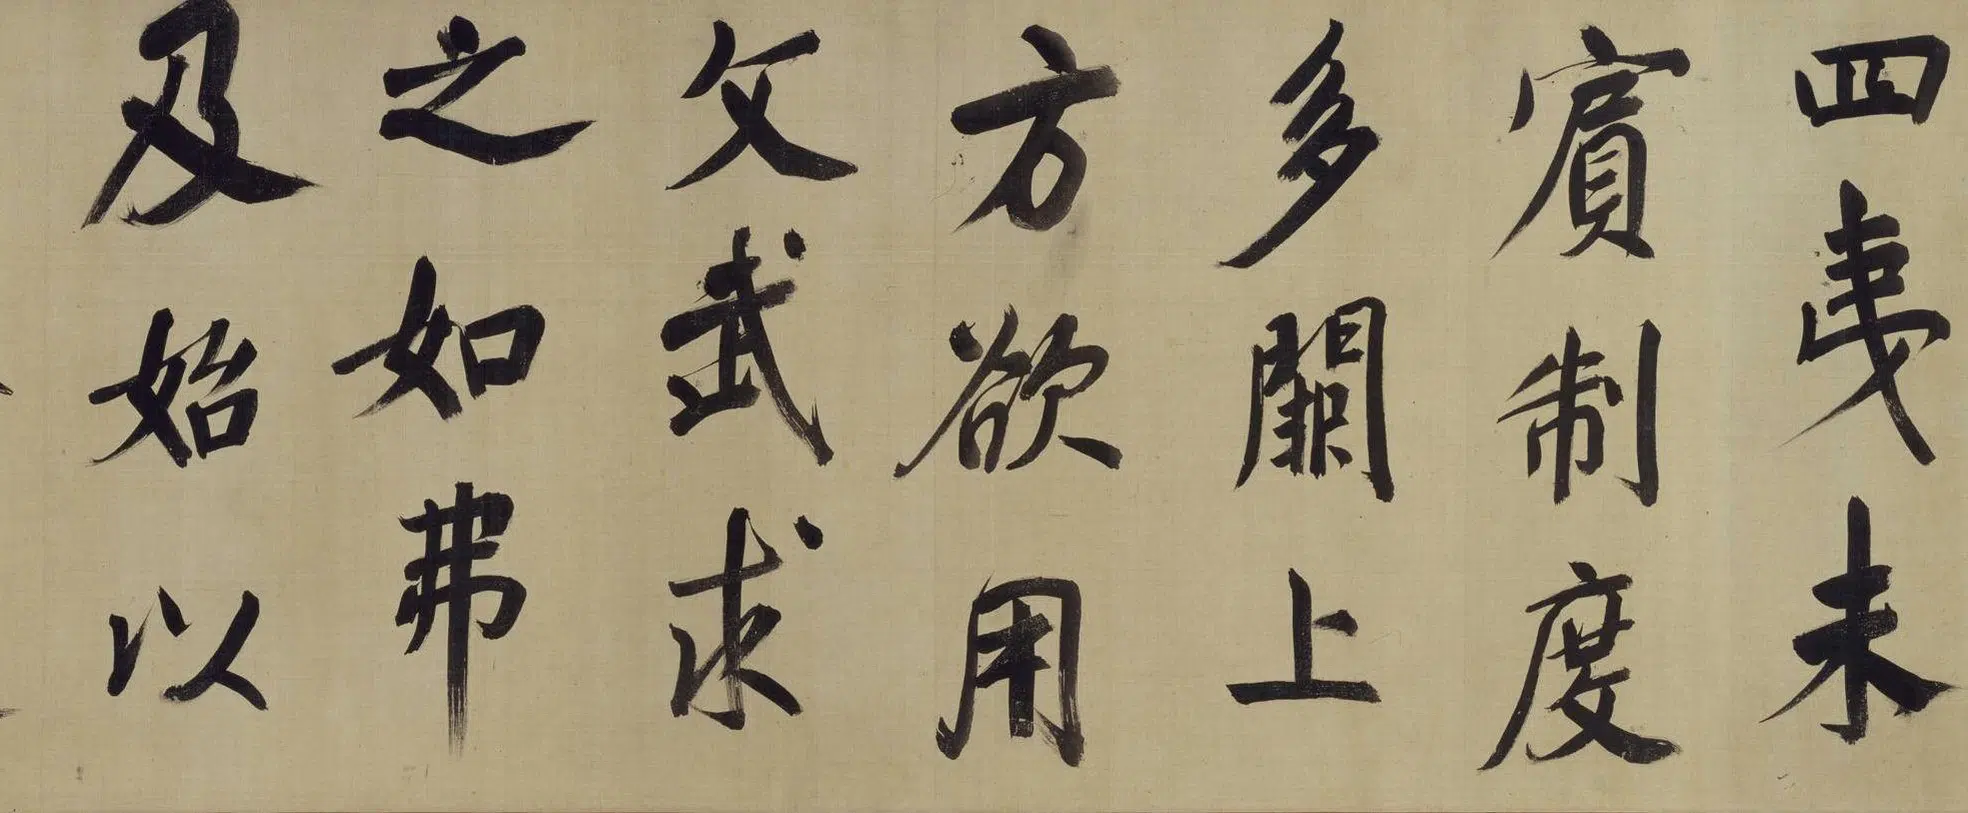 四夷未
賓制度
多闕上
方欲用
文武求
之如弗
及始以